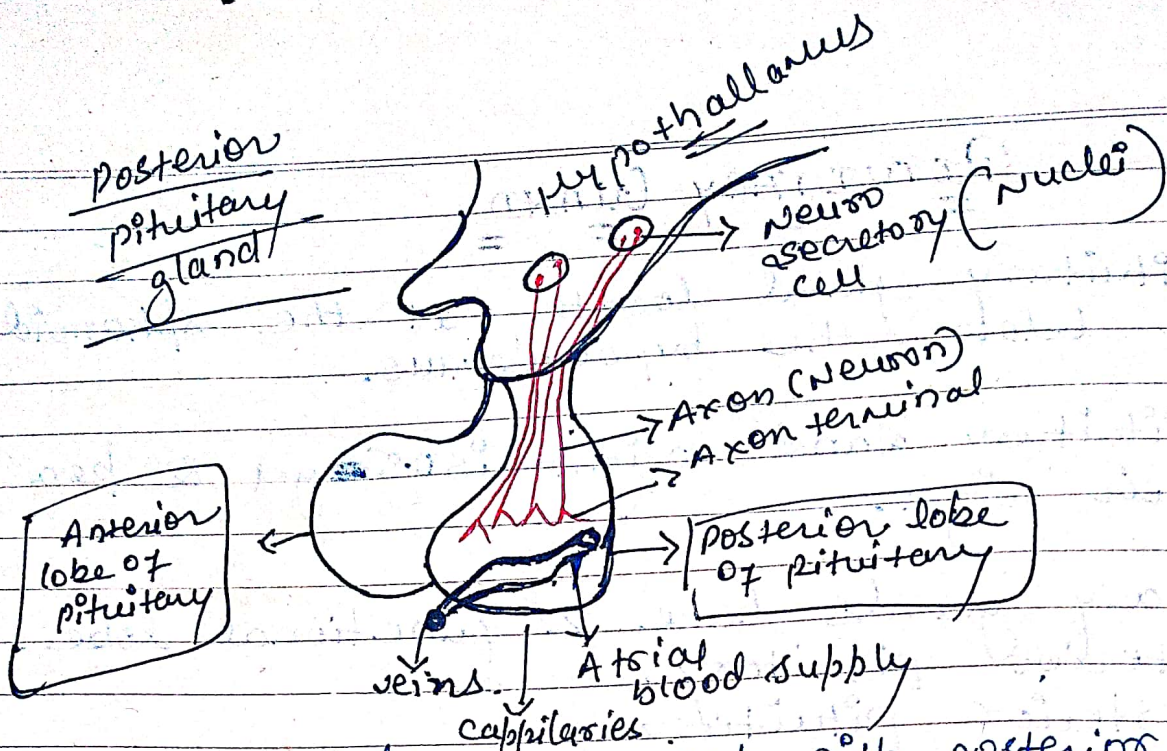 Posterior
pituitary
gland
Hypothallamus
Neuro
secretory (Nuclei)
cell
Axon (Neuron)
Axon terminal
Anterior
lobe of
pituitary
Posterior lobe
of pituitary
veins.
Atrial
blood supply
cappilaries
posterior